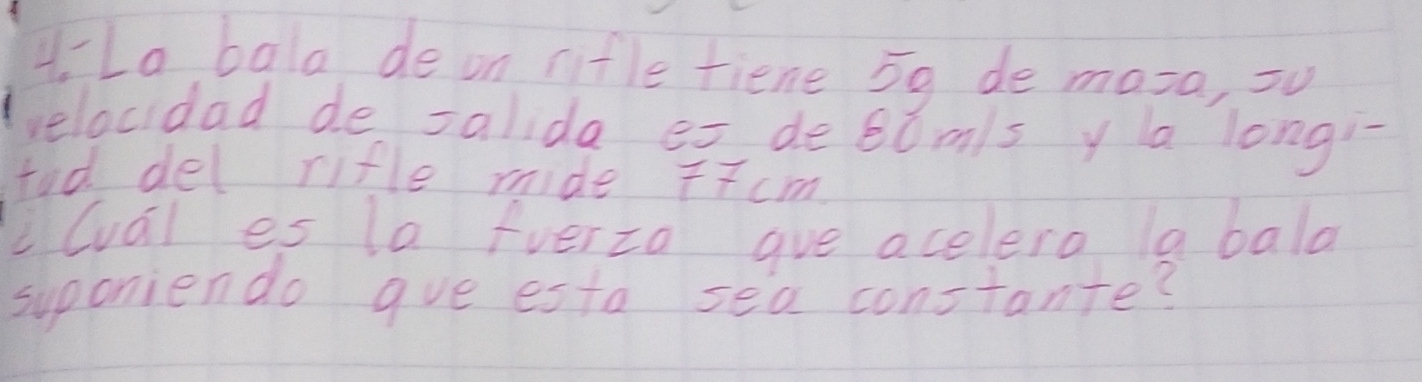 4.- La bala de un rifle tiene 5g de masa, su
velocidad de salida es de 80m/s y la longi-
tud del rifle mide 77cm
¿Cuál es la fuerza que acelera la bala
suponiendo que esta sea constante?